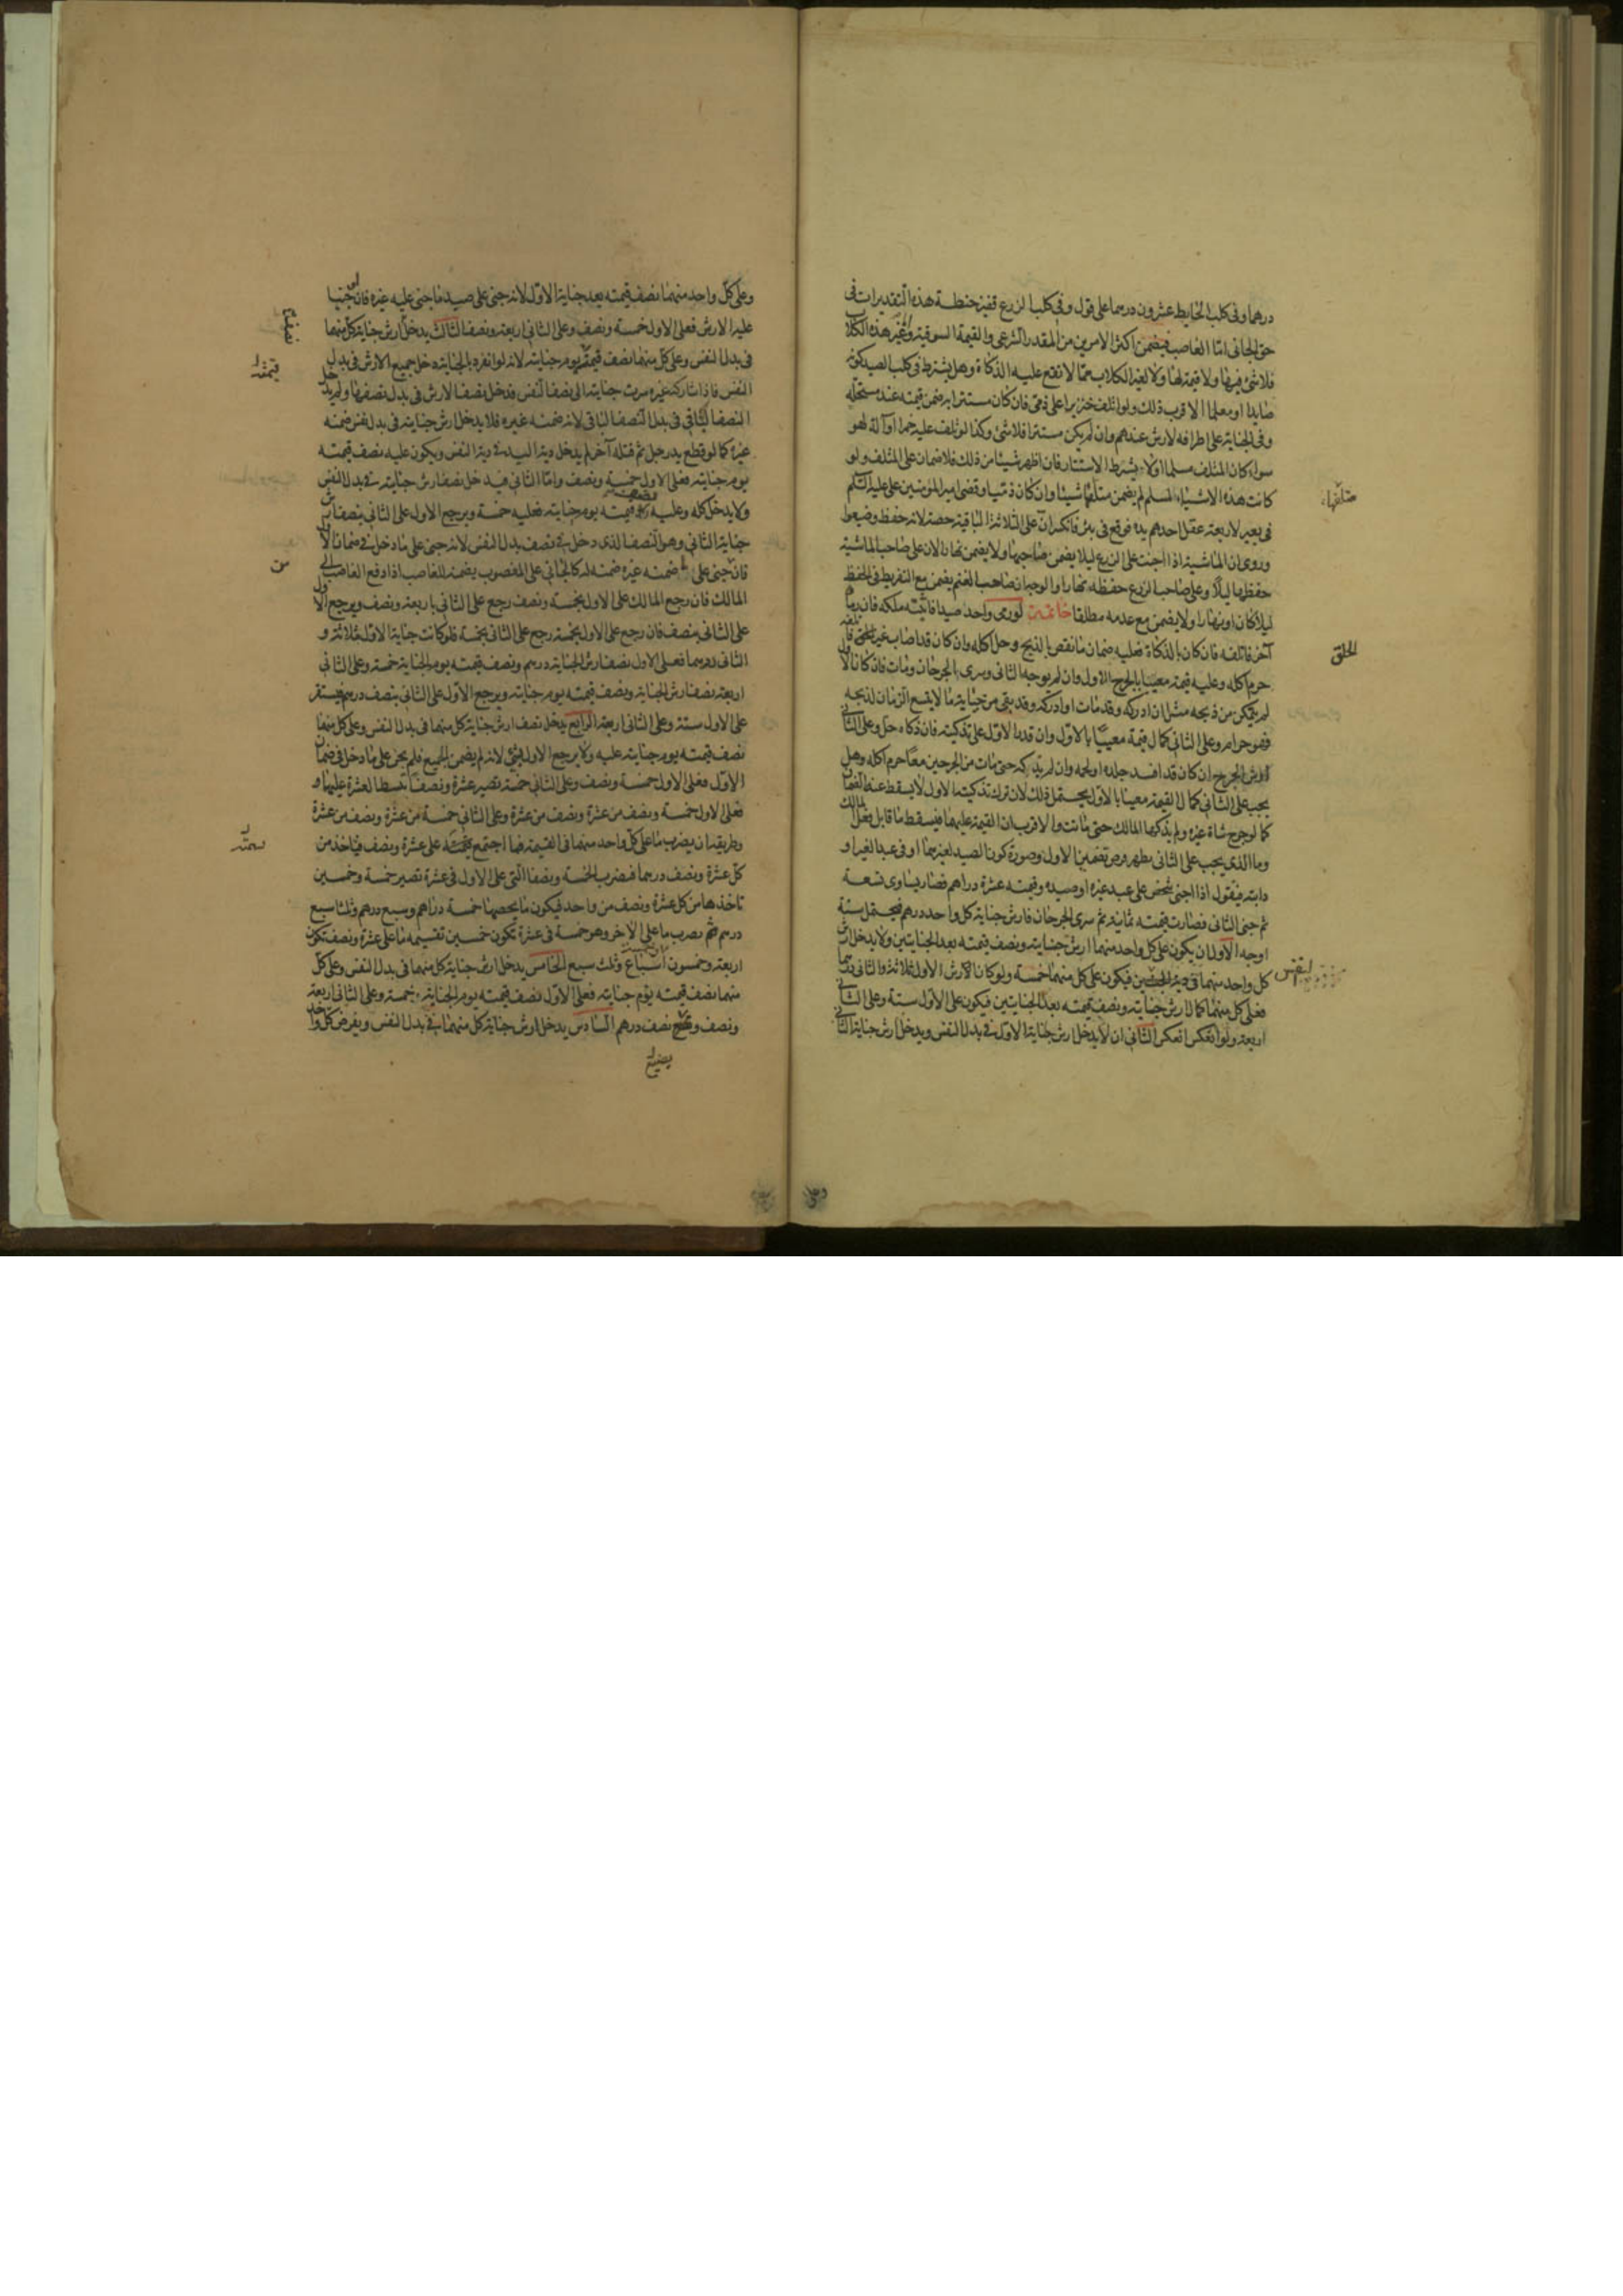 درهما وفى كلب الحايط عشرون درهما على قول وفى كلب الزرع قفيز حنطة هذه التقديرات فى
حق الجانى امّا الغاصب فيضمن اكثر الامرين من المقدر الشرعى والقيمة السوقية وغير هذه الكلاب
فلا شئ فيها ولا قيمة لها ولا لغير الكلاب ممّا لا تقع عليه الذكاة وهل يشترط فى كلب الصيد كونه
صايدا او معلما الاقرب ذلك ولو اتلف خنزيرا على ذمى فان كان مستترا به ضمن قيمته عند مستحليه
وفى الجناية على اطرافه الارش عندهم وان لم يكن مستترا فلا شئ وكذا لو اتلف عليه خمرا او آلة لهو
سواء كان المتلف مسلما اولا ويشترط الاستتار فان اظهر شيئا من ذلك فلا ضمان على المتلف ولو
كانت هذه الاشياء لمسلم لم يضمن متلفها شيئا وان كان ذميا وقضى امير المؤمنين على عليه السّلم
فى بعير لاربعة عقل احدهم يده فوقع فى بئر فانكسر انّ على الثلاثة الباقية حصته لانه حفظ وضيعوا
وروى ان الماشية اذا جنت على الزرع ليلا يضمن صاحبها ولا يضمن نهارا لان على صاحب الماشية
حفظها ليلا وعلى صاحب الزرع حفظه نهارا والوجه ان صاحب الغنم يضمن مع التفريط فى الحفظ
ليلا كان او نهارا ولا يضمن مع عدمه مطلقا خاتمة لو رمى واحد صيدا فاثبته ملكه فان رماه
آخر فاتلفه فان كان بالذكاة فعليه ضمان ما نقص بالذبح وحل اكله وان كان قد اصاب غير الحلق فان
حرم اكله وعليه قيمته معيبا بالجرح الاول وان لم يوجه الثانى وسرى الجرحان ومات فان كان الاول
لم يتمكن من ذبحه مثل ان ادركه وقد مات او ادركه وقد بقى من حياته ما لا يتسع الزمان لذبحه
فهو حرام وعلى الثانى كمال قيمته معيبا بالاول وان قدر الاول على تذكيته فان ذكاه حل وعلى الثانى
ارش الجرح ان كان قد افسد جلده او لحمه وان لم يذكه حتى مات من الجرحين معا حرم اكله وهل
يجب على الثانى كمال القيمة معيبا بالاول يحتمل ذلك لان ترك تذكيته الاول لا يسقط عنه الضمان
كما لو جرح شاة غيره ولم يذكها المالك حتى ماتت والاقرب ان القيمة عليهما فيسقط ما قابل فعل المالك
وما الذى يجب على الثانى يظهر بفرض تضمين الاول وصورة كون الصيد لغيرهما او فى عبد الغير او
دابته فيقول اذا جنى شخص على عبد غيره او صيده وقيمته عشرة دراهم فصار يساوى تسعة
ثم جنى الثانى فصارت قيمته ثمانية ثم سرى الجرحان فارش جناية كل واحد درهم فيحتمل ستة
اوجه الاول ان يكون على كل واحد منهما ارش جنايته ونصف قيمته بعد الجنايتين ولا يدخل ارش
كل واحد منهما فى دية النفس فيكون على كل منهما خمسة ولو كان الارش الاول ثلاثة والثانى درهما
فعلى كل منهما كمال ارش جنايته ونصف قيمته بعد الجنايتين فيكون على الاول ستة وعلى الثانى
اربعة ولو انعكس انعكس الثانى ان لا يدخل ارش جناية الاول فى بدل النفس ويدخل ارش جناية الثانى
متلفها
الحلق
النفس
وعلى
وعلى كلّ واحد منهما نصف قيمته بعد جناية الاوّل لانه جنى على صيد ما جنى عليه غيره فان جنيا
عليه الارش فعلى الاول خمسة ونصف وعلى الثانى اربعة ونصف الثالث يدخل ارش جناية كل منهما
فى بدل النفس وعلى كل منهما نصف قيمته يوم جنايته لانه لو انفرد بالجناية دخل جميع الارش فى بدل
النفس فاذا شاركه غيره سرت جنايته الى نصف النفس فدخل نصف الارش فى بدل نصفها ولم يدخل
النصف الثانى فى بدل النصف الثانى لانه ضمنه غيره فلا يدخل ارش جنايته فى بدل نفس ضمنه
غيره كما لو قطع يد رجل ثم قتله آخر لم يدخل دية اليد فى دية النفس ويكون عليه نصف قيمته
يوم جنايته فعلى الاول خمسة ونصف وامّا الثانى فيدخل نصف ارش جنايته فى بدل النفس
ولا يدخل كله وعليه نصف قيمته يوم جنايته فعليه خمسة ويرجع الاول على الثانى بنصف ارش
جناية الثانى وهو النصف الذى دخل فى نصف بدل النفس لانه جنى على ما دخل فى ضمان الاول
فان جنى على ما ضمنه غيره ضمنه له كالجانى على المغصوب يضمنه للغاصب اذا دفع الغاصب الى
المالك فان رجع المالك على الاول بخمسة ونصف رجع على الثانى باربعة ونصف ويرجع الاول
على الثانى بنصف فان رجع على الاول بخمسة رجع على الثانى بخمسة فلو كانت جناية الاول ثلاثة و
الثانى درهما فعلى الاول نصف ارش الجناية درهم ونصف وقيمته يوم الجناية خمسة وعلى الثانى
اربعة نصف ارش الجناية ونصف قيمته يوم جنايته ويرجع الاوّل على الثانى بنصف درهم فيستقر
على الاول ستة وعلى الثانى اربعة الرابع يدخل نصف ارش جناية كل منهما فى بدل النفس وعلى كل منهما
نصف قيمته يوم جنايته عليه ولا يرجع الاول بشئ لانه لم يضمن الجميع فلم يجن على ما دخل فى ضمان
الاوّل فعلى الاول خمسة ونصف وعلى الثانى خمسة تصير عشرة ونصفا تبسط العشرة عليها و
فعلى الاول خمسة ونصف من عشرة ونصف من عشرة وعلى الثانى خمسة من عشرة ونصف من عشرة
وطريقه ان يضرب ما على كل واحد منهما فى القيمة فما اجتمع قسمته على عشرة ونصف فيأخذ من
كل عشرة ونصف درهما فيضرب الخمسة ونصفا التى على الاول فى عشرة تصير خمسة وخمسين
تاخذها من كل عشرة ونصف من واحد فيكون ما يخصها خمسة دراهم وسبع درهم وثلثا سبع
درهم ثم يضرب ما على الآخر وهو خمسة فى عشرة تكون خمسين تقسيمه ما على عشرة ونصف تكون
اربعة وخمسون اسباع وثلث سبع الخامس يدخل ارش جناية كل منهما فى بدل النفس وعلى كلّ
منهما نصف قيمته يوم جنايته فعلى الاوّل نصف قيمته يوم الجناية خمسة وعلى الثانى اربعة
ونصف ويضيع نصف درهم السادس يدخل ارش جناية كل منهما فى بدل النفس ويفرض كل واحد
نصف
قيمته
من
قسمته
يضيع